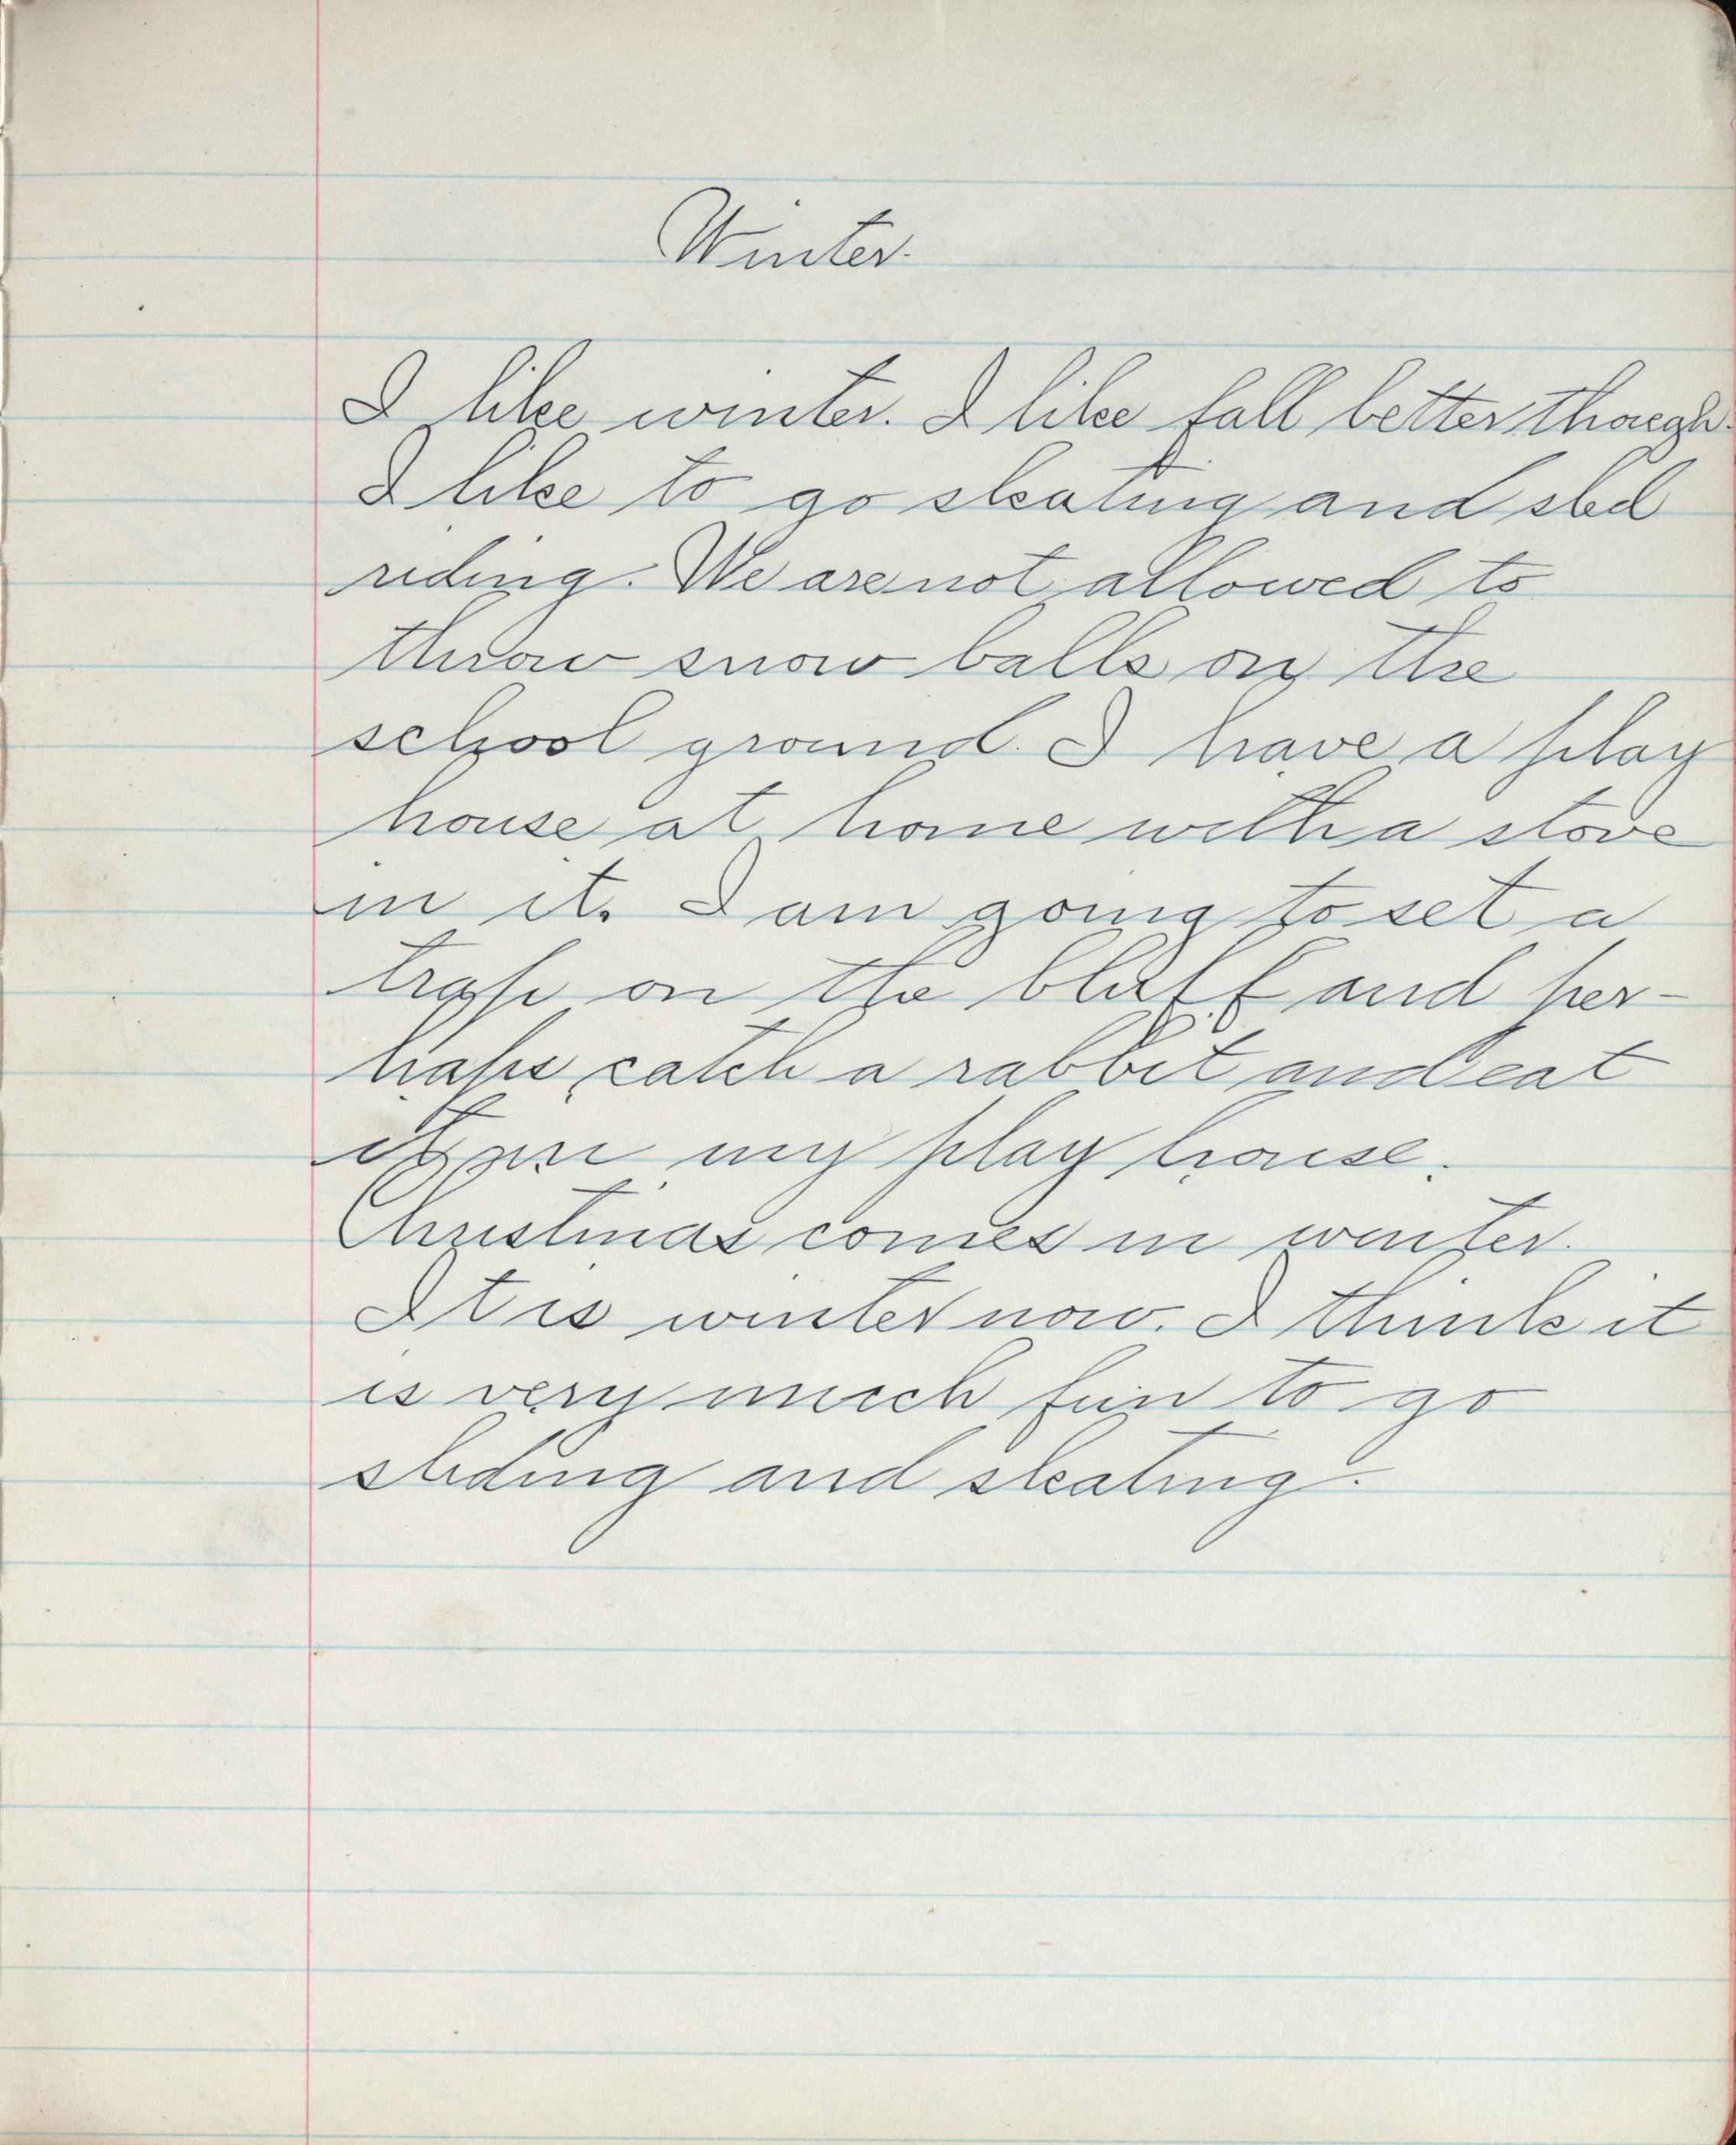 Winter.
I like winter. I like fall better though.
I like to go skating and sled
riding. We are not allowed to
throw snow balls on the
school ground. I have a play
house at home with a stove
in it. I am going to set a
trap on the bluff and per-
haps catch a rabbit and eat
it in my play house.
Christmas comes in winter.
It is winter now. I think it
is very much fun to go
sliding and skating.